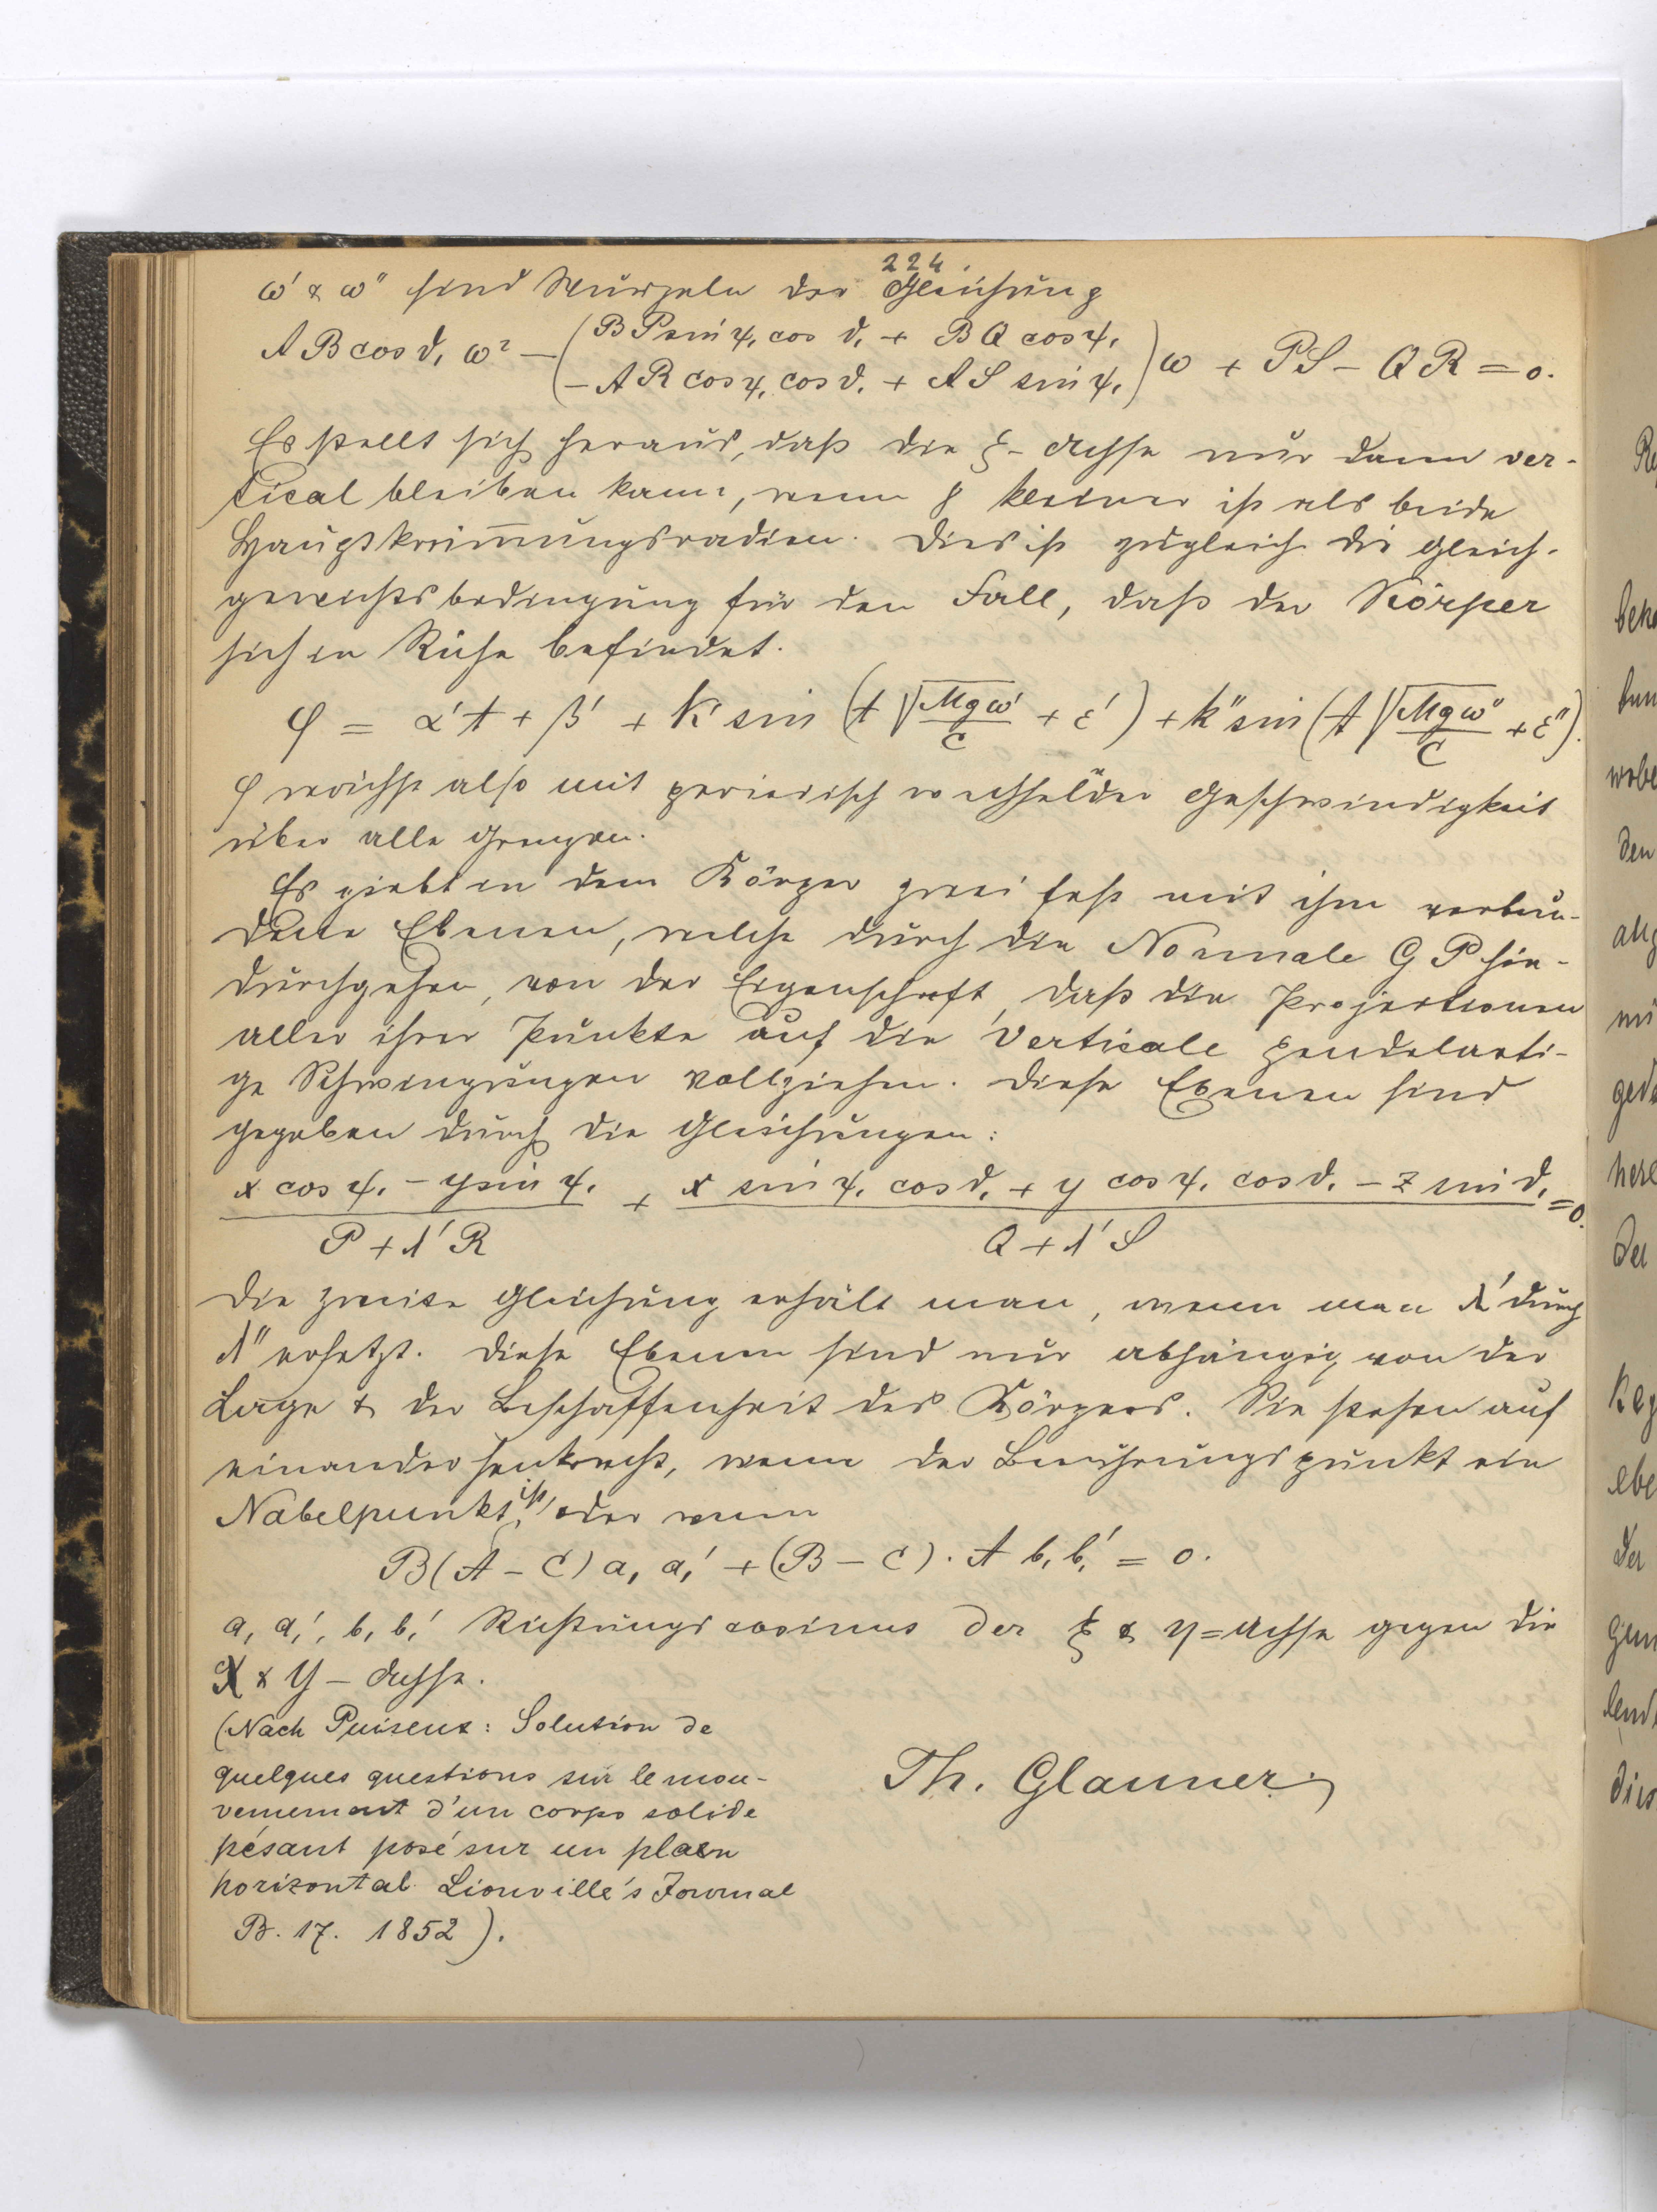 224.
ω' & ω'' sind Wurzeln der Gleichung
A B cos ϑ, ω² − ( B P sin ψ, cos ϑ, + B Q cos ψ,
− A R cos ψ, cos ϑ, + A S sin ψ, ) ω + P S − Q R = 0.
Es stellt sich heraus, daß die ξ-Achse nur dann ver-
tical bleiben kann, wenn kleiner ist als beide
Hauptkrüm̅ungsradien. Dies ist zugleich die Gleich-
gewichtsbedingung für den Fall, daß der Körper
sich in Ruhe befindet.
φ = α't + β' + K' sin (t √Mgω'/C + ε') + K'' sin (t √Mgω''/C + ε'').
φ wächst also mit periodisch wechselnder Geschwindigkeit
über alle Grenzen.
Es giebt in dem Körper zwei fest mit ihm verbun-
dene Ebenen, welche durch die Normale G P hin-
durchgehen, von der Eigenschaft, daß die Projectionen
aller ihrer Punkte auf die Verticale pendelarti-
ge Schwingungen vollziehen. Diese Ebenen sind
gegeben durch die Gleichungen:
(x cos ψ, − y sin ψ,)/(P + λ' R) + (x sin ψ, cos ϑ, + y cos ψ, cos ϑ, − z sin ϑ,)/(Q + λ' S) = 0.
Die zweite Gleichung erhält man, wenn man λ' durch
λ'' ersetzt. Diese Ebenen sind nur abhängig von der
Lage & der Beschaffenheit des Körpers. Sie stehen auf
einander senkrecht, wenn der Berührungspunkt ein
Nabelpunkt ist, oder wenn
B (A − C) a, a,' + (B − C) · A b, b,' = 0.
a, a,', b, b,' Richtungscosinus der ξ & η = Achse gegen die
X & Y − Achse.
(Nach Puiseux: Solution de
quelques questions sur le mou-
vemement d'un corps solide
pésant posé sur un plan
horizontal. Liouville's Journal
B. 17. 1852).
Th. Glauner.